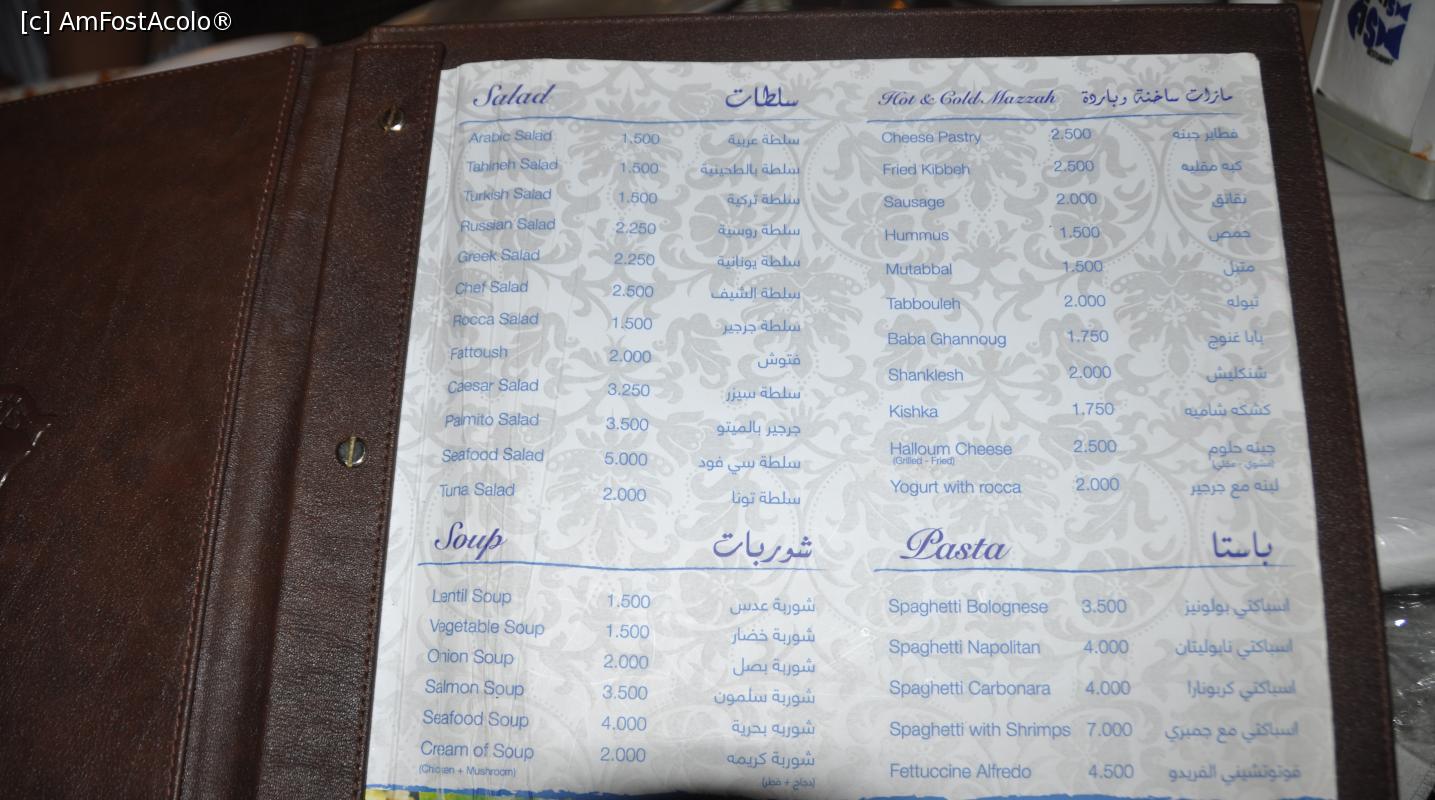 [c] AmFostAcolo®
Salad سلطات
Arabic Salad 1.500 سلطة عربية
Tahineh Salad 1.500 سلطة بالطحينية
Turkish Salad 1.500 سلطة تركية
Russian Salad 2.250 سلطة روسية
Greek Salad 2.250 سلطة يونانية
Chef Salad 2.500 سلطة الشيف
Rocca Salad 1.500 سلطة جرجير
Fattoush 2.000 فتوش
Caesar Salad 3.250 سلطة سيزر
Palmito Salad 3.500 جرجير بالميتو
Seafood Salad 5.000 سلطة سي فود
Tuna Salad 2.000 سلطة تونا
Soup شوربات
Lentil Soup 1.500 شوربة عدس
Vegetable Soup 1.500 شوربة خضار
Onion Soup 2.000 شوربة بصل
Salmon Soup 3.500 شوربة سلمون
Seafood Soup 4.000 شوربه بحرية
Cream of Soup 2.000 شوربة كريمه
(Chicken + Mushroom) (دجاج + فطر)
Hot & Cold Mazzah مازات ساخنة وباردة
Cheese Pastry 2.500 فطاير جبنه
Fried Kibbeh 2.500 كبه مقليه
Sausage 2.000 نقانق
Hummus 1.500 حمص
Mutabbal 1.500 متبل
Tabbouleh 2.000 تبوله
Baba Ghannoug 1.750 بابا غنوج
Shanklesh 2.000 شنكليش
Kishka 1.750 كشكه شاميه
Halloum Cheese 2.500 جبنه حلوم
(Grilled - Fried) (مشوي - مقلي)
Yogurt with rocca 2.000 لبنه مع جرجير
Pasta باستا
Spaghetti Bolognese 3.500 اسباكتي بولونيز
Spaghetti Napolitan 4.000 اسباكتي نابوليتان
Spaghetti Carbonara 4.000 اسباكتي كربونارا
Spaghetti with Shrimps 7.000 اسباكتي مع جمبري
Fettuccine Alfredo 4.500 فوتوتشيني الفريدو